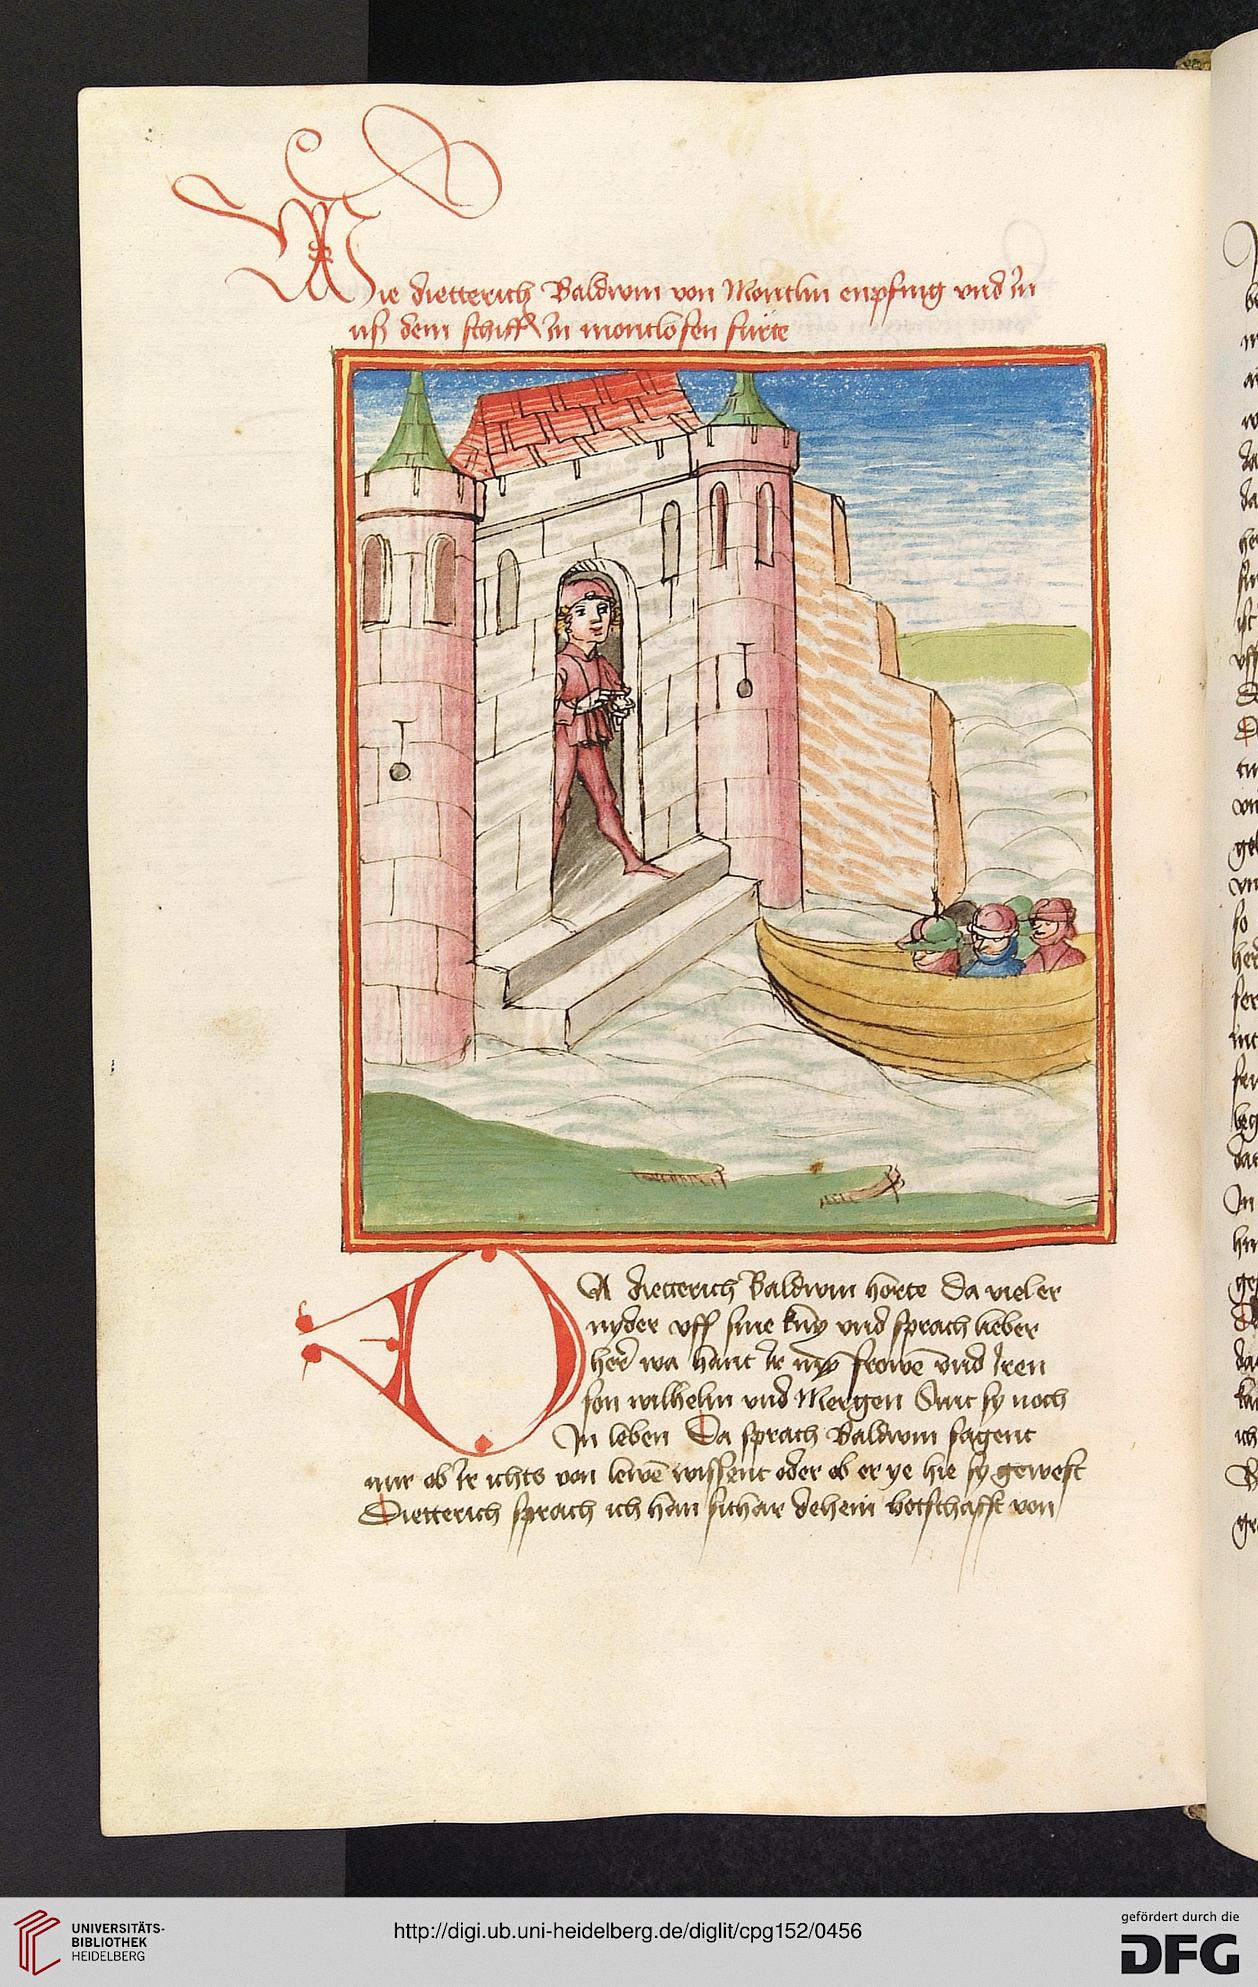 Wie dietterich Baldwin von Montlin enpfing vnd in
uß dem schiff in montlosen furte
DA dietterich Baldwin horte Da viel er
nyder uff sine kny vnd sprach lieber
her wa hant ir myn frowen vnd iren
son wilhelm vnd Mergen Sint sy noch
In leben Da sprach Baldwin sagent
mir ob ir ichts von lewen wissent oder ob er ye hie sy gewest
Dietterich sprach ich han sithar dehein botschafft von
UNIVERSITÄTS-
BIBLIOTHEK
HEIDELBERG
http://digi.ub.uni-heidelberg.de/diglit/cpg152/0456
gefördert durch die
DFG